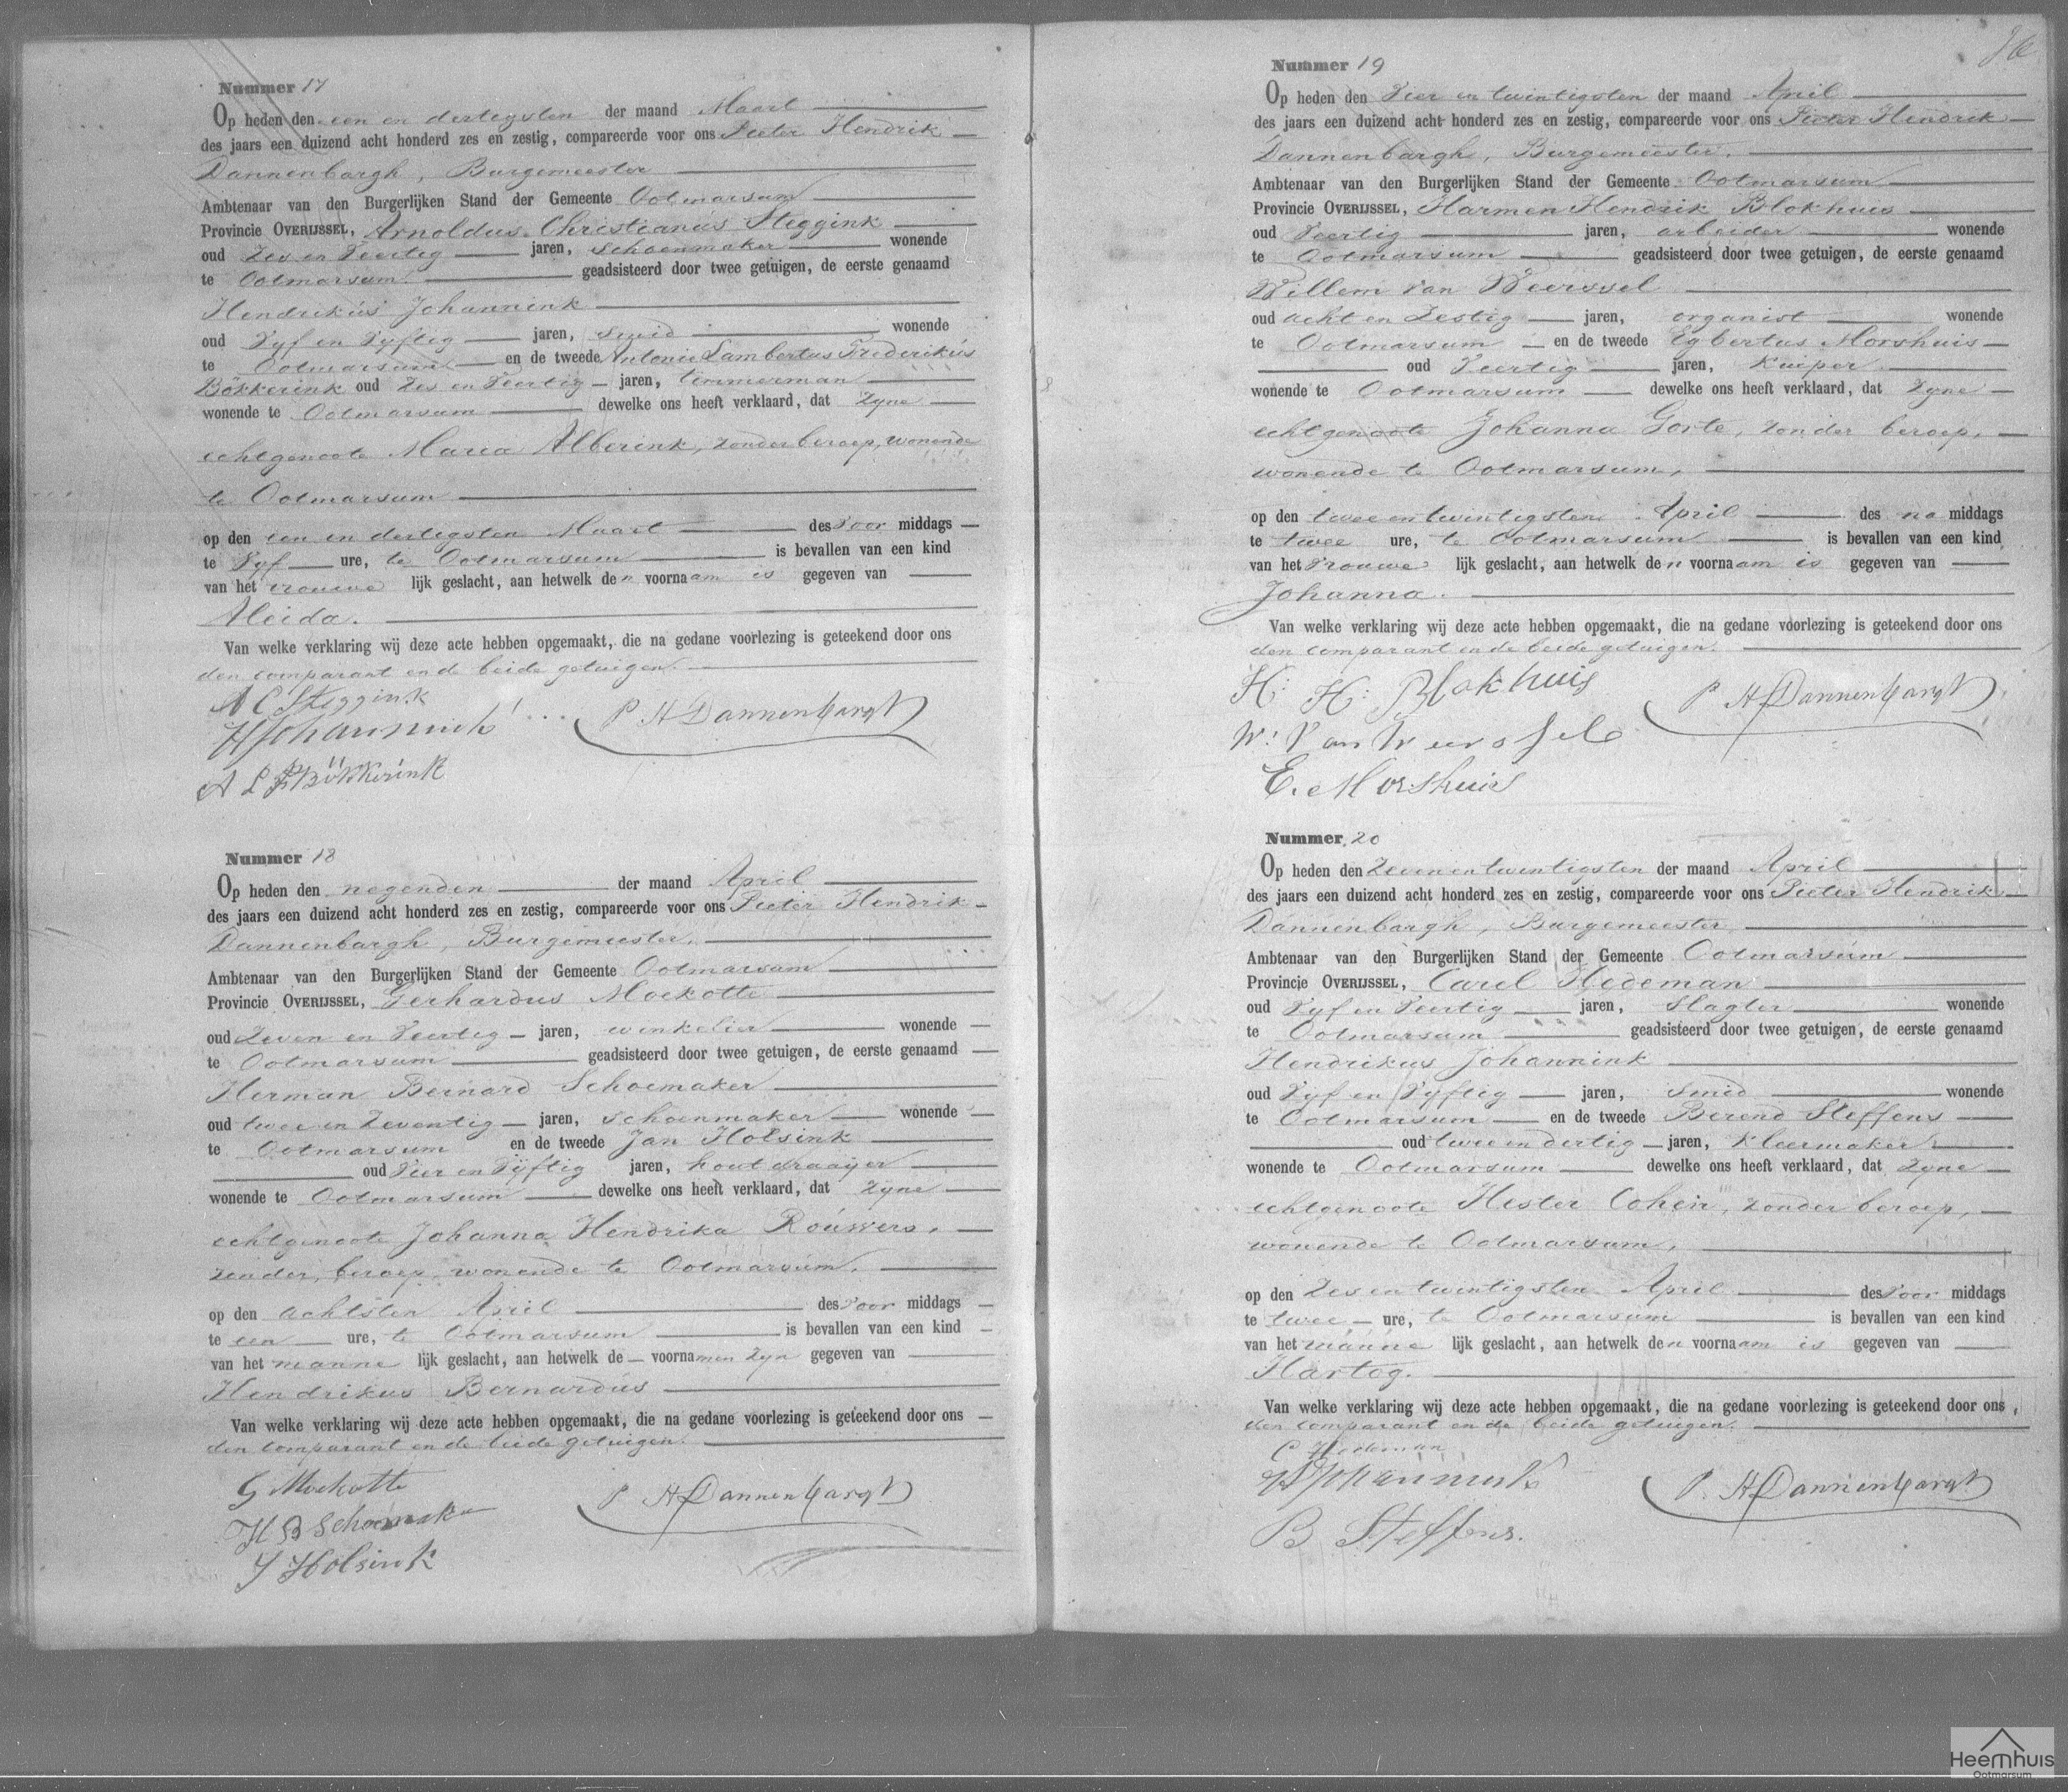 Nummer 17
Op heden den een en dertigsten der maand Maart
des jaars een duizend acht honderd zes en zestig, compareerde voor ons Pieter Hendrik
Dannenbargh, Burgemeester
Ambtenaar van den Burgerlijken Stand der Gemeente Ootmarsum
Provincie OVERIJSSEL, Arnoldus Christianus Steggink
oud Zes en Veertig jaren, schoenmaker wonende
te Ootmarsum. geadsisteerd door twee getuigen, de eerste genaamd
Hendrikus Johannink
oud Vyf en Vyftig jaren, smid wonende
te Ootmarsum en de tweede Antonie Lambertus Frederikus
Bökkerink oud Zes en Veertig jaren, timmerman
wonende te Ootmarsum dewelke ons heeft verklaard, dat Zyne
echtgenoote Maria Alberink, zonder beroep, wonende
te Ootmarsum
op den een en dertigsten Maart des Voor middags
te Vyf ure, te Ootmarsum is bevallen van een kind
van het vrouwe lijk geslacht, aan hetwelk den voornaam is gegeven van
Aleida.
Van welke verklaring wij deze acte hebben opgemaakt, die na gedane voorlezing is geteekend door ons
den comparant en de beide getuigen.
A C Steggink
HJohannink P H Dannenbargh
A L F Bökkerink
Nummer 18
Op heden den negenden der maand April
des jaars een duizend acht honderd zes en zestig, compareerde voor ons Pieter Hendrik
Dannenbargh, Burgemeester,
Ambtenaar van den Burgerlijken Stand der Gemeente Ootmarsum
Provincie OVERIJSSEL, Gerhardus Moekotte
oud Zeven en Veertig jaren, winkelier wonende
te Ootmarsum geadsisteerd door twee getuigen, de eerste genaamd
Herman Bernard Schoemaker
oud twee en Zeventig jaren, schoenmaker wonende
te Ootmarsum en de tweede Jan Holsink
oud Vier en Vyftig jaren, houtdraayer
wonende te Ootmarsum dewelke ons heeft verklaard, dat Zyne
echtgenoote Johanna Hendrika Rouwers,
zonder beroep, wonende te Ootmarsum,
op den achtsten April des Voor middags
te een ure, te Ootmarsum is bevallen van een kind
van het manne lijk geslacht, aan hetwelk de voornamen Zyn gegeven van
Hendrikus Bernardus
Van welke verklaring wij deze acte hebben opgemaakt, die na gedane voorlezing is geteekend door ons
den comparant en de beide getuigen.
G Moekotte
H B Schoemake P H Dannenbargh
J Holsink
Nummer 19
Op heden den Vier en twintigsten der maand April
des jaars een duizend acht honderd zes en zestig, compareerde voor ons Pieter Hendrik
Dannenbargh, Burgemeester,
Ambtenaar van den Burgerlijken Stand der Gemeente Ootmarsum
Provincie OVERIJSSEL, Harmen Hendrik Blokhuis
oud Veertig jaren, arbeider wonende
te Ootmarsum geadsisteerd door twee getuigen, de eerste genaamd
Willem van Weerssel
oud acht en Zestig jaren, organist wonende
te Ootmarsum en de tweede Egbertus Morshuis
oud Veertig jaren, Kuiper
wonende te Ootmarsum dewelke ons heeft verklaard, dat Zyne
echtgenoote Johanna Gorte, zonder beroep,
wonende te Ootmarsum,
op den twee en twintigsten April des na middags
te twee ure, te Ootmarsum is bevallen van een kind
van het Vrouwe lijk geslacht, aan hetwelk den voornaam is gegeven van
Johanna.
Van welke verklaring wij deze acte hebben opgemaakt, die na gedane voorlezing is geteekend door ons
den comparant en de beide getuigen.
H: H: Blokhuis P H Dannenbargh
W: Van Weerssel
E. Morshuis
Nummer 20
Op heden den Zeven en twintigsten der maand April
des jaars een duizend acht honderd zes en zestig, compareerde voor ons Pieter Hendrik
Dannenbargh, Burgemeester
Ambtenaar van den Burgerlijken Stand der Gemeente Ootmarsum
Provincie OVERIJSSEL, Carel Hedeman
oud Vyf en Veertig jaren, Slagter wonende
te Ootmarsum geadsisteerd door twee getuigen, de eerste genaamd
Hendrikus Johannink
oud Vyf en Vyftig jaren, smid wonende
te Ootmarsum en de tweede Berend Steffens
oud twee en dertig jaren, Kleermaker
wonende te Ootmarsum dewelke ons heeft verklaard, dat Zyne
echtgenoote Hester Cohen, zonder beroep,
wonende te Ootmarsum,
op den Zes en twintigsten April des Voor middags
te twee ure, te Ootmarsum is bevallen van een kind
van het manne lijk geslacht, aan hetwelk den voornaam is gegeven van
Hartog.
Van welke verklaring wij deze acte hebben opgemaakt, die na gedane voorlezing is geteekend door ons,
den comparant en de beide getuigen.
C Hedeman
HJohannink P. H Dannenbargh
B Steffens.
Heemhuis
Ootmarsum